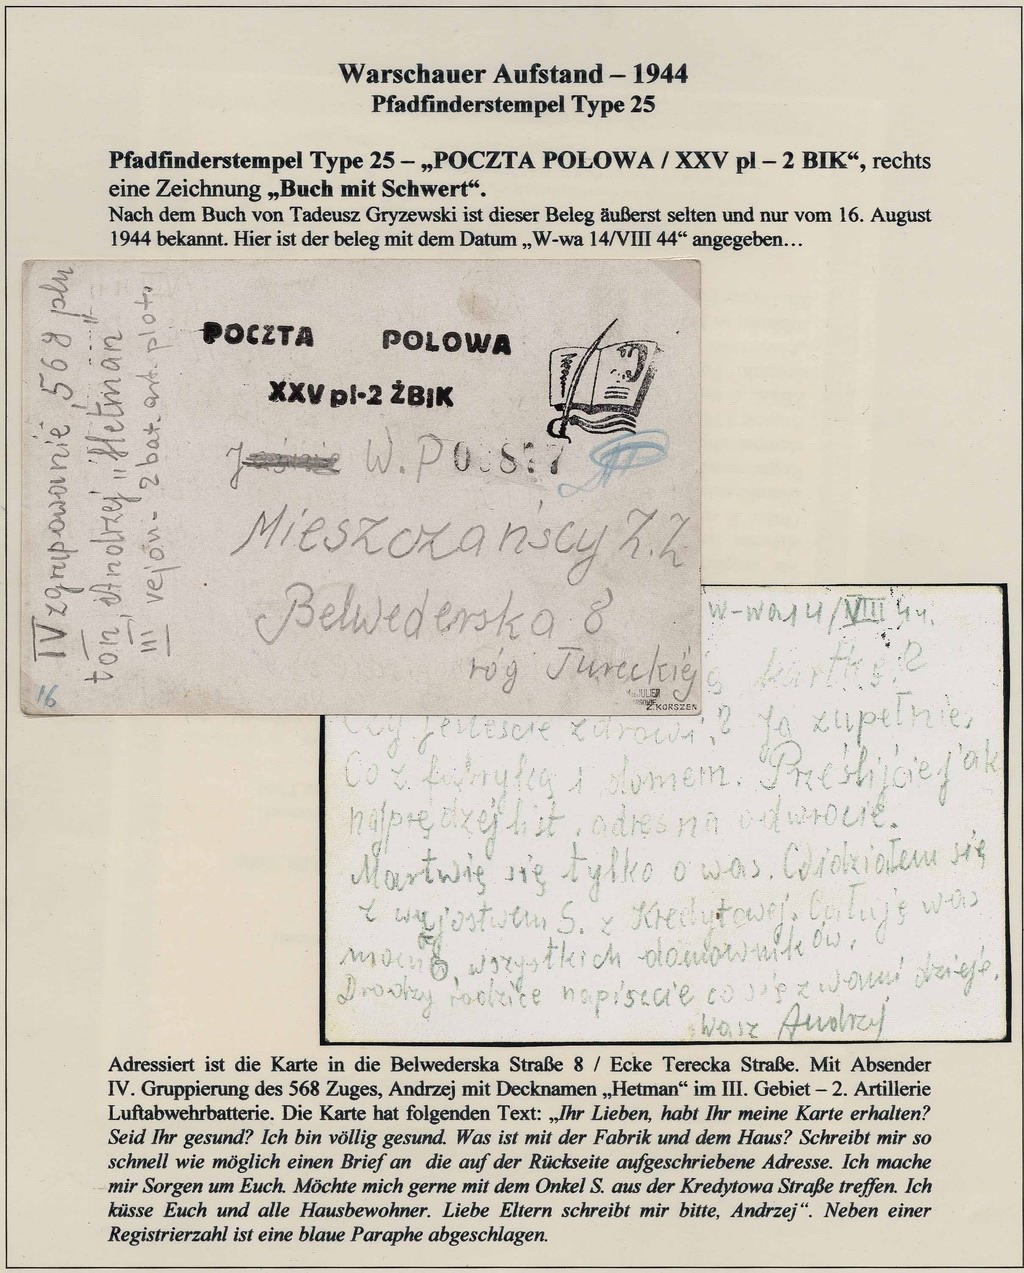 Warschauer Aufstand – 1944
Pfadfinderstempel Type 25
Pfadfinderstempel Type 25 – „POCZTA POLOWA / XXV pl – 2 BIK“, rechts
eine Zeichnung „Buch mit Schwert“.
Nach dem Buch von Tadeusz Gryzewski ist dieser Beleg äußerst selten und nur vom 16. August
1944 bekannt. Hier ist der beleg mit dem Datum „W-wa 14/VIII 44“ angegeben…
IV zgrupowanie 568 plu
ton, Andrzej „Hetman”
III rejon - 2 bat. art. plot.
POCZTA POLOWA
XXV pl-2 ŻBIK
W. P
Mieszczańscy Z. Z
Belwederska 8
róg Tureckiej
16
Z. KORSZEŃ
W-wa 14/VIII 44.
kartkę?
Czy jesteście zdrowi? Ja zupełnie.
Co z fabryką i domem. Prześlijcie jak
najprędzej list, adres na odwrocie.
Martwię się tylko o was. Widziałem się
z wujostwem S. z Kredytowej. Całuję was
mocno, wszystkich domowników.
Drodzy rodzice napiszcie co się z wami dzieje.
Wasz Andrzej
Adressiert ist die Karte in die Belwederska Straße 8 / Ecke Terecka Straße. Mit Absender
IV. Gruppierung des 568 Zuges, Andrzej mit Decknamen „Hetman“ im III. Gebiet – 2. Artillerie
Luftabwehrbatterie. Die Karte hat folgenden Text: „Ihr Lieben, habt Ihr meine Karte erhalten?
Seid Ihr gesund? Ich bin völlig gesund. Was ist mit der Fabrik und dem Haus? Schreibt mir so
schnell wie möglich einen Brief an die auf der Rückseite aufgeschriebene Adresse. Ich mache
mir Sorgen um Euch. Möchte mich gerne mit dem Onkel S. aus der Kredytowa Straße treffen. Ich
küsse Euch und alle Hausbewohner. Liebe Eltern schreibt mir bitte, Andrzej“. Neben einer
Registrierzahl ist eine blaue Paraphe abgeschlagen.